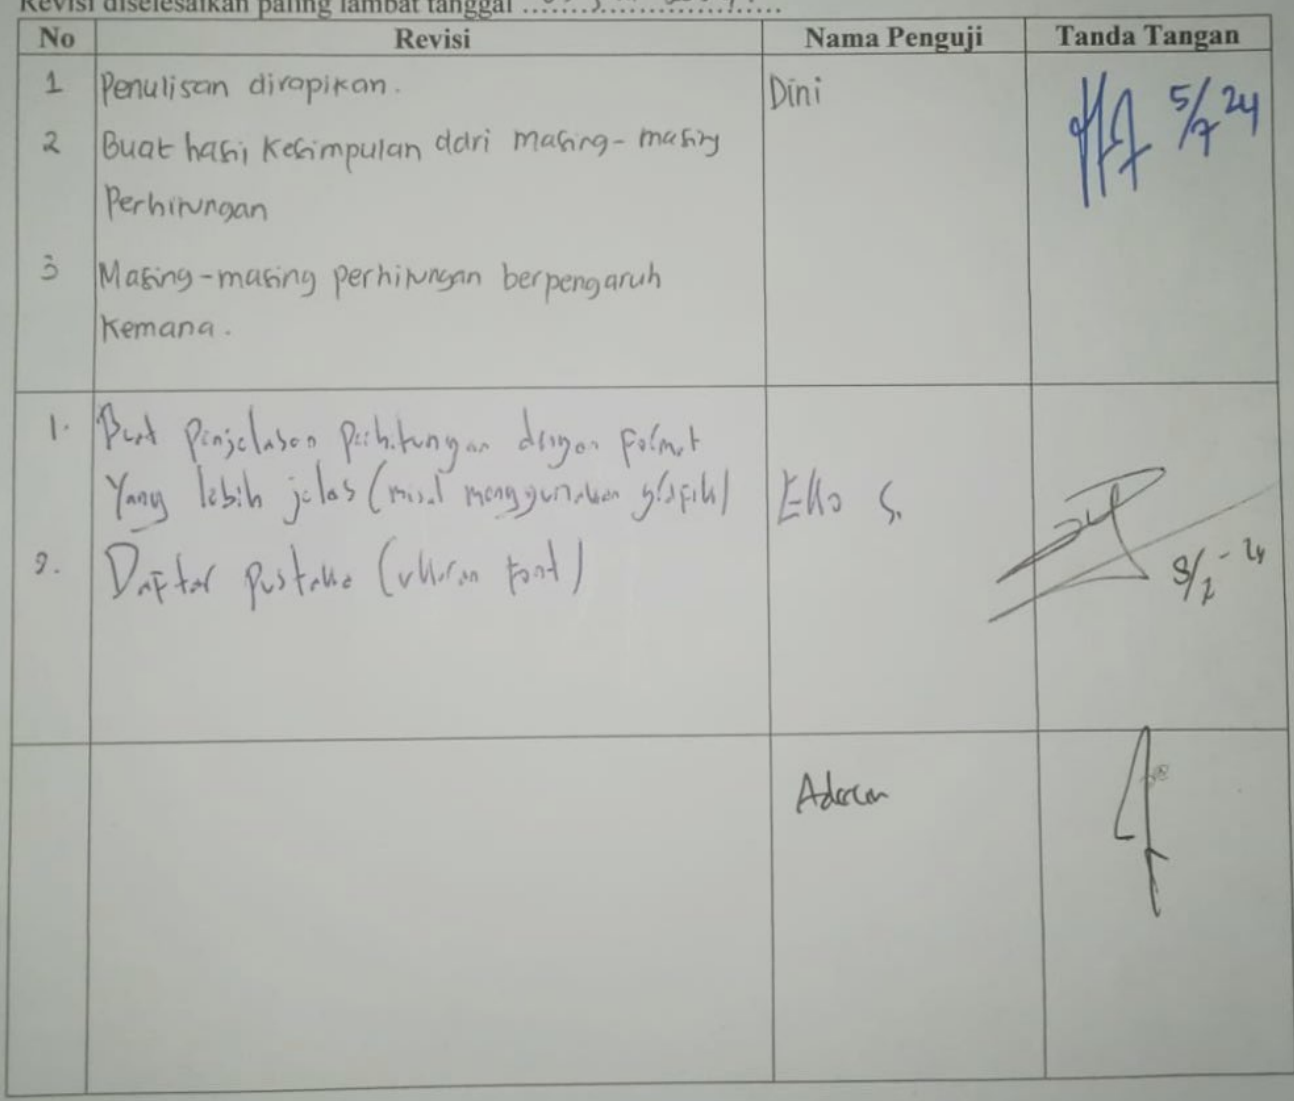 Revisi diselesaikan paling lambat tanggal
No Revisi Nama Penguji Tanda Tangan
1 Penulisan dirapikan. Dini 5/7 24
2 Buat hasil kesimpulan dari masing-masing
Perhitungan
3 Masing-masing perhitungan berpengaruh
Kemana.
1. Buat penjelasan perhitungan dengan format
Yang lebih jelas (misal menggunakan grafik) Eko S.
2. Daftar pustaka (ukuran font) 8/7-24